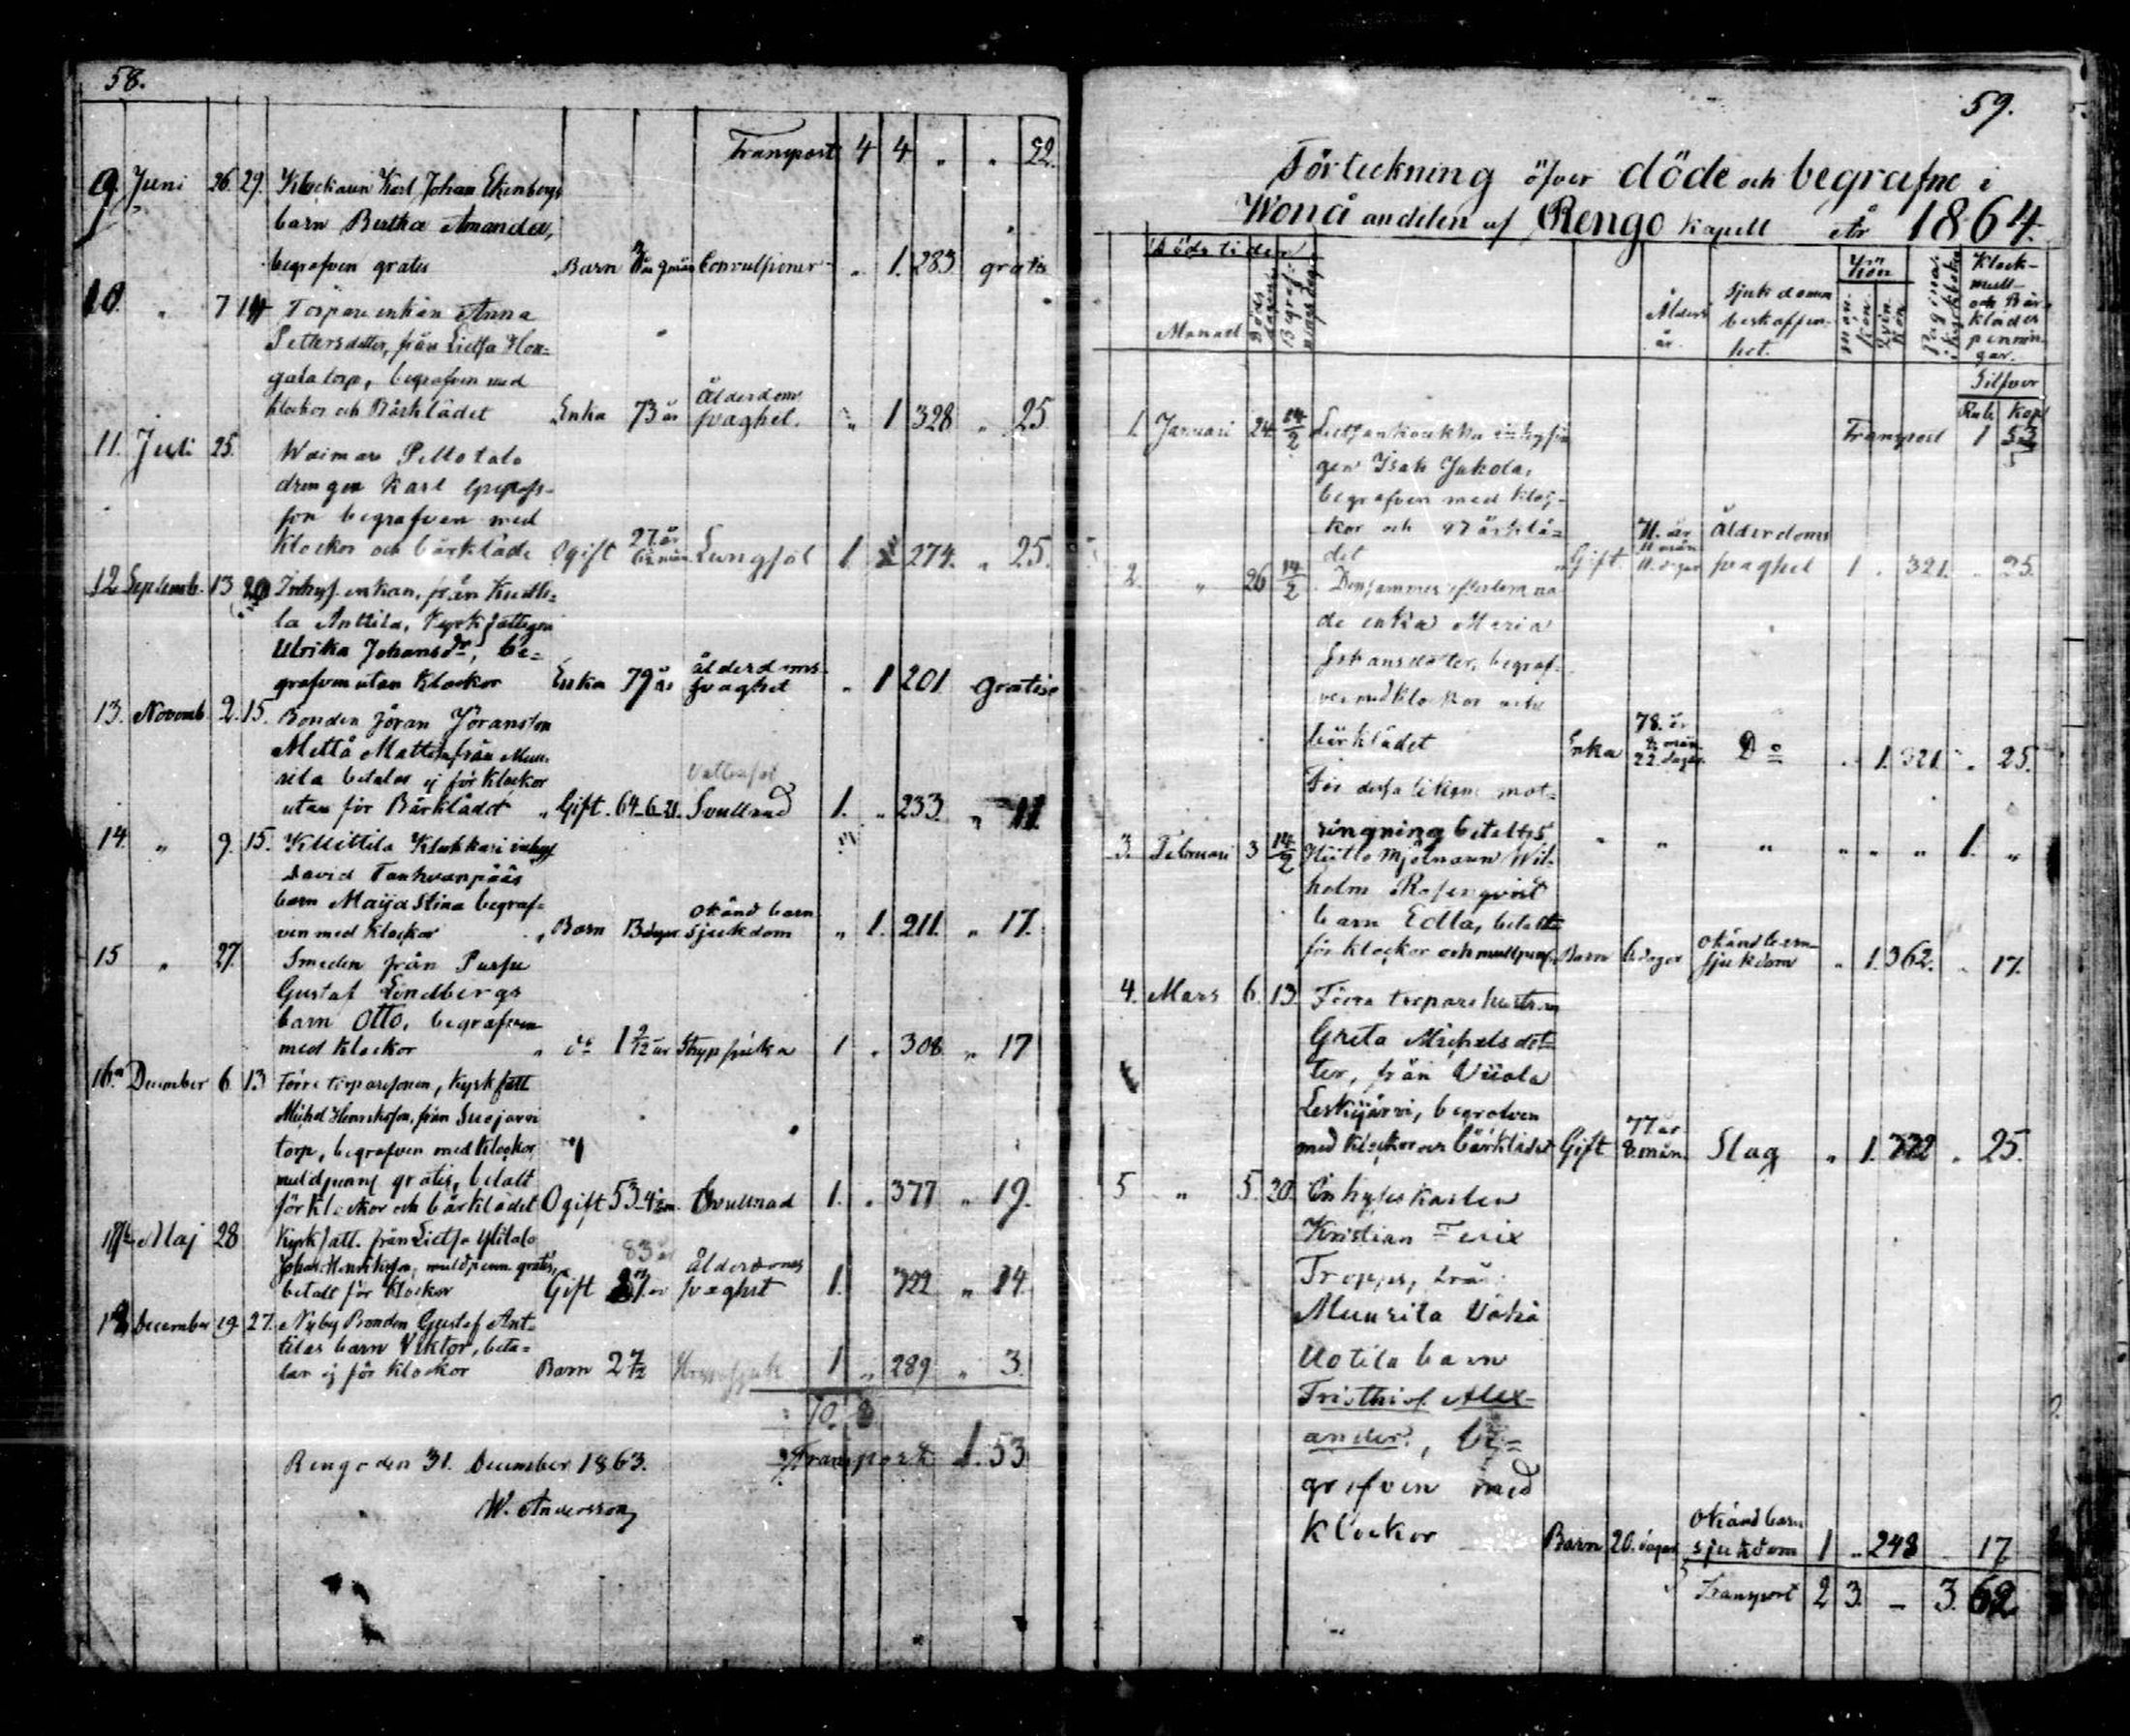 58.
Transport 4 4 " " 52.
9 Juni 26. 29. Klockaren Karl Johan Ekenbergs
barn Bertha Amanda,
begrafven gratis Barn 9 mån Convulsioner " 1. 283 gratis
10. " 7 14 Torpare enkan Anna
Pettersdotter, från Lietsa Hon-
gala torp, begrafven med
klockor och Bårklädet Enka 73 år Ålderdoms svaghet. " 1 328 " 25
11. Juli 25. Waimaro Pellotalo
drengen Karl
son begrafven med
klockor och bårkläde Ogift 27 år Lungsot 1 274. " 25.
12 Septemb. 13 20 Inhys. enkan, från Kutti-
la Anttila, Kyrkfattigen
Ulrika Johansdr, be-
grafven utan klockor Enka 79 år ålderdoms svaghet " 1 201 gratis
13. Novemb. 2. 15. Bonden Jöran Jöransson
Mattila från Muu-
rila betalar ej för klockor
utan för Bårklädet " Gift. 64-6-21. Vattusot Svullnad 1. " 233. " 11.
14. " 9. 15. Klockkari inhys
David Tanhuanpääs
barn Maija Stina begraf-
ven med klockor " Barn 13 dagar okänd barn sjukdom " 1. 211. " 17.
15 " 27. Smeden från
Gustaf Lindbergs
barn Otto, begrafven
med klockor " do 1 9/12 år Strypsjuka 1 " 308 " 17
16. December 6 13 Förre torparesonen, Kyrkfatt
Michel Henriksson, från Suojarvi
torp, begrafven med klockor,
muldpenng gratis, betalt
för klockor och bårklädet Ogift 53 Svullnad 1. " 377 " 19.
17. Maj 28 Kyrkfatt. från Lietsa Ylitalo
Johan Henriksson, muldpenn. gratis,
betalt för klockor Gift 83 år Ålderdoms svaghet 1. 322 " 14.
18 December 19. 27. Nyby Bonden Gustaf Ant-
tilas barn Viktor, beta-
lar ej för klockor Barn 2 1 " 289 " 3.
10. 8
Transport 1.53
Rengo den 31. December 1863.
W. Andersson
59.
Förteckning öfver döde och begrafne i
Wonå andelen af Rengo kapell År 1864.
Dödstider
Månad Döds dagen Begrafnings dagen Ålders år. Sjukdomens beskaffen- het. Kön mankön qvinkön Pagina i kyrkboken Klock- mull- och Bår- klädes pennin- gar.
Silfver
Rub. Kop
Transport 1 53
1. Januari 24 14/2 Lietsankoukku inhysin
gen Isak Jakola,
begrafven med kloc-
kor och bårklä-
det Gift. 71. år 11 mån 11. dagar Ålderdoms svaghet 1 . 321. " 25.
2. " 26 14/2 Densammes efterlemna
de enka Maria
Johansdotter, begraf-
ven med klockor och
bårklädet Enka 78. år mån 22 dagar. Do " 1. 321 " 25.
För dessa likens mot-
ringning betaltes " " " " " " 1. "
3. Februari 3 14/2 Mjölnaren Wil-
helm Rosenqvist
barn Edla, betalt
för klockor och mullpeng. Barn 6 dagar okänd barn- sjukdom " 1. 362. " 17.
4. Mars 6. 13 Förra torpare hustrun
Greta Michelsdot-
ter, från Uiiala
Leskijärvi, begrafven
med klockor och bårklädet Gift 77 år 8. mån. Slag " 1. 322 " 25.
5 " 5. 20. Inhyses karlen
Kristian Felix
Tropps, från
Muurila Vähä
Uotila barn
Fristhiof Alex-
ander, be-
grafven med
klockor Barn 20. dagar okänd barn sjukdom 1 " 248 17.
Transport 2 3. — 3. 62